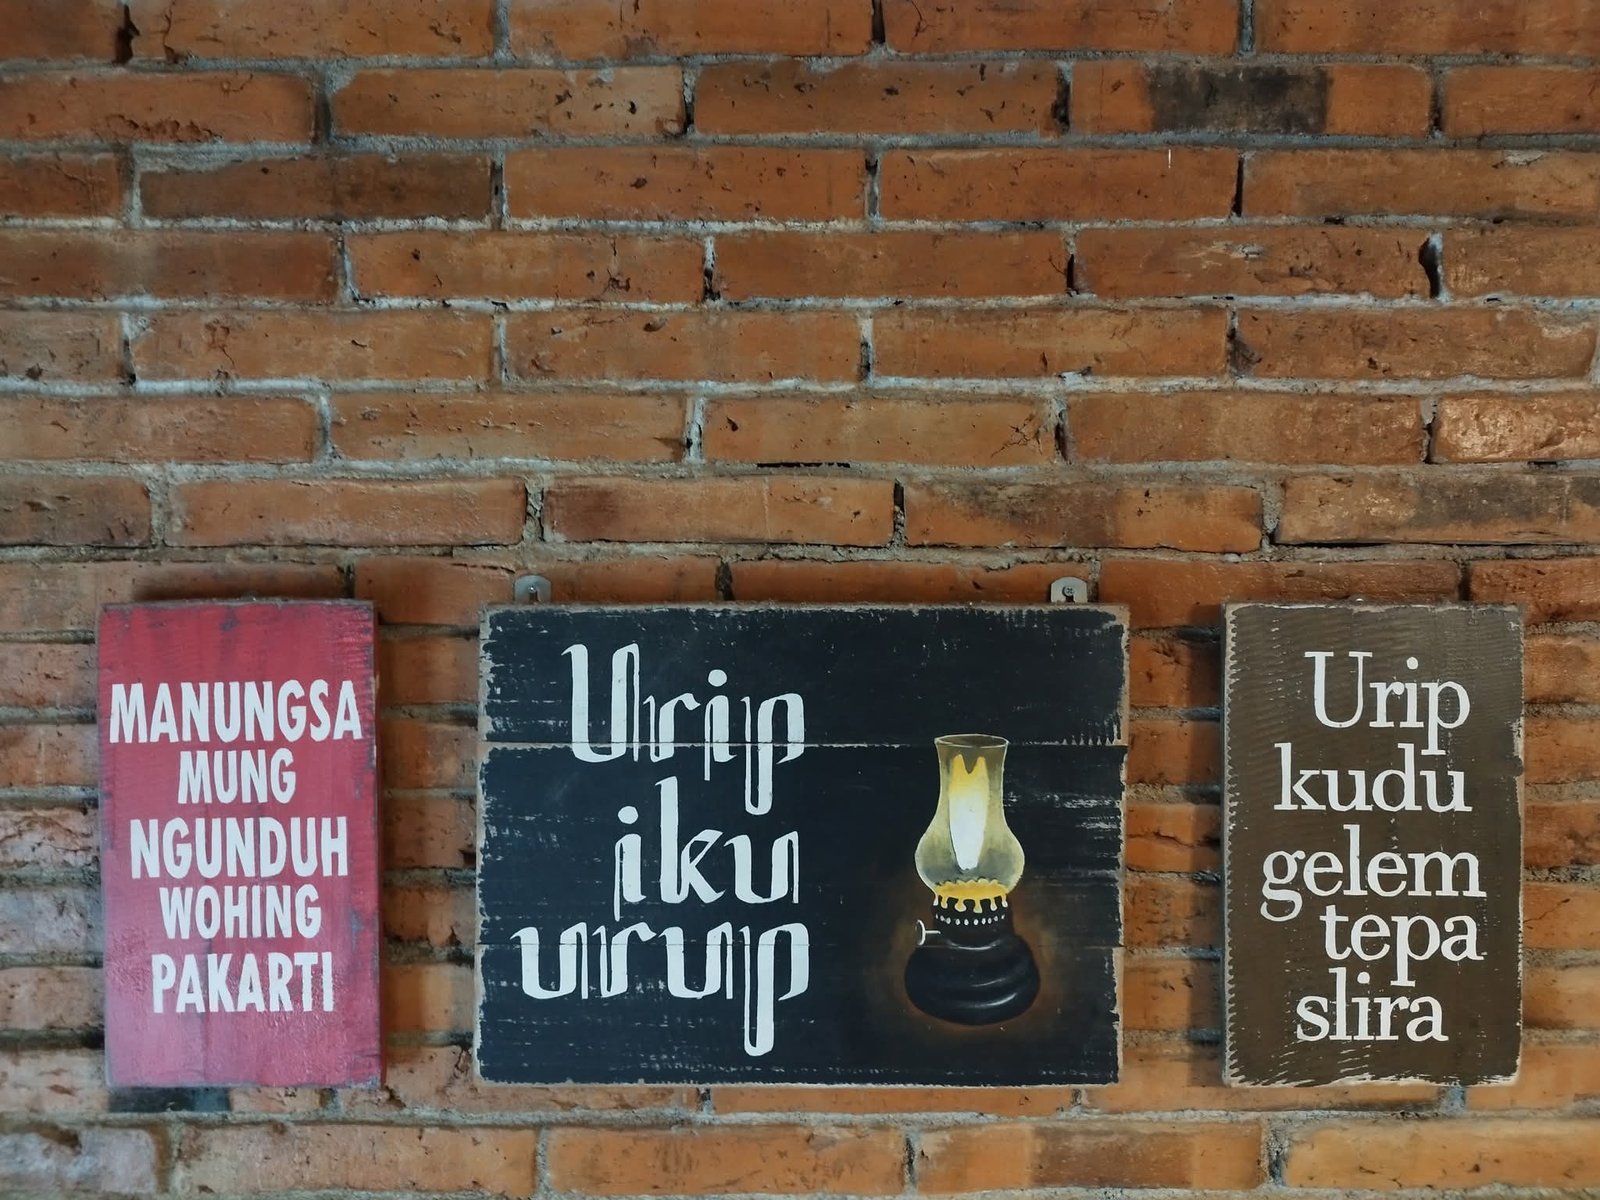 MANUNGSA
MUNG
NGUNDUH
WOHING
PAKARTI
Urip
iku
urup
Urip
kudu
gelem
tepa
slira